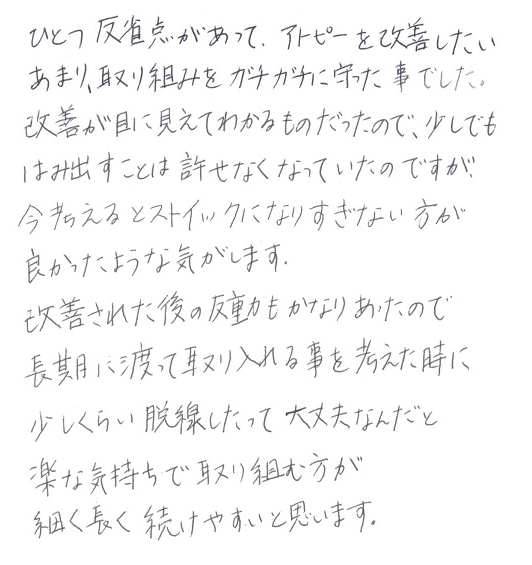 ひとつ反省点があって、アトピーを改善したい
あまり、取り組みをガチガチに守った事でした。
改善が目に見えてわかるものだったので、少しでも
はみ出すことは許せなくなっていたのですが、
今考えるとストイックになりすぎない方が
良かったような気がします。
改善された後の反動もかなりあったので
長期に渡って取り入れる事を考えた時に
少しくらい脱線したって大丈夫なんだと
楽な気持ちで取り組む方が
細く長く続けやすいと思います。